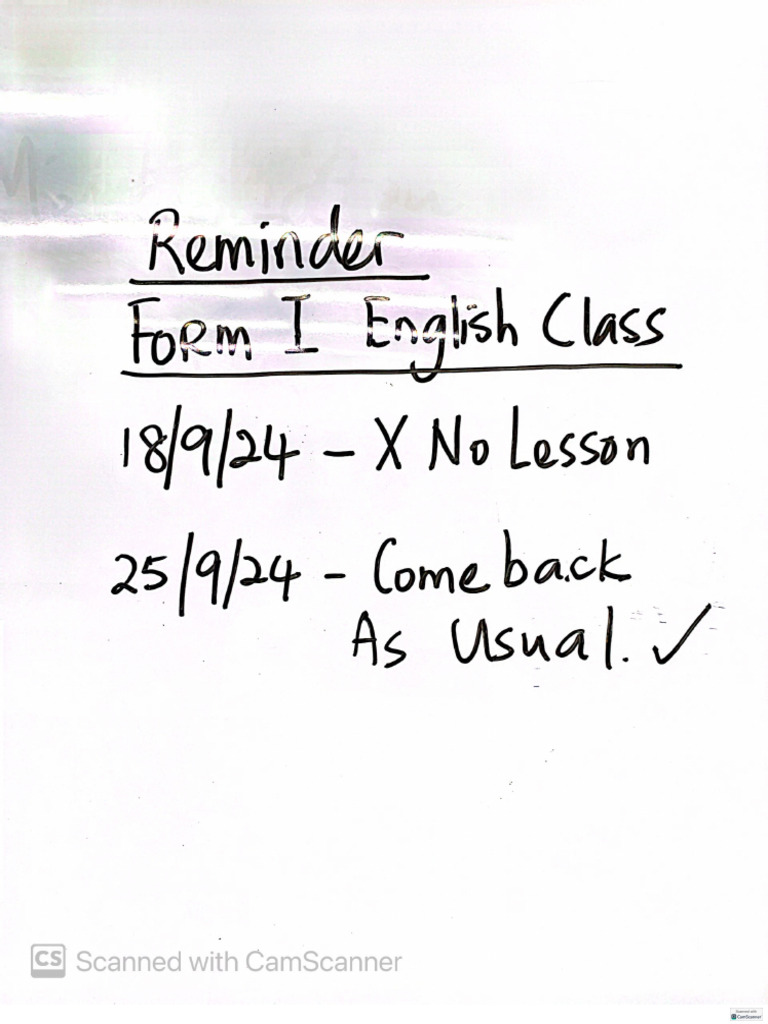 Reminder
Form I English Class
18/9/24 - X No Lesson
25/9/24 - Come back
As Usual. ✓
CS Scanned with CamScanner
Scanned with
CamScanner